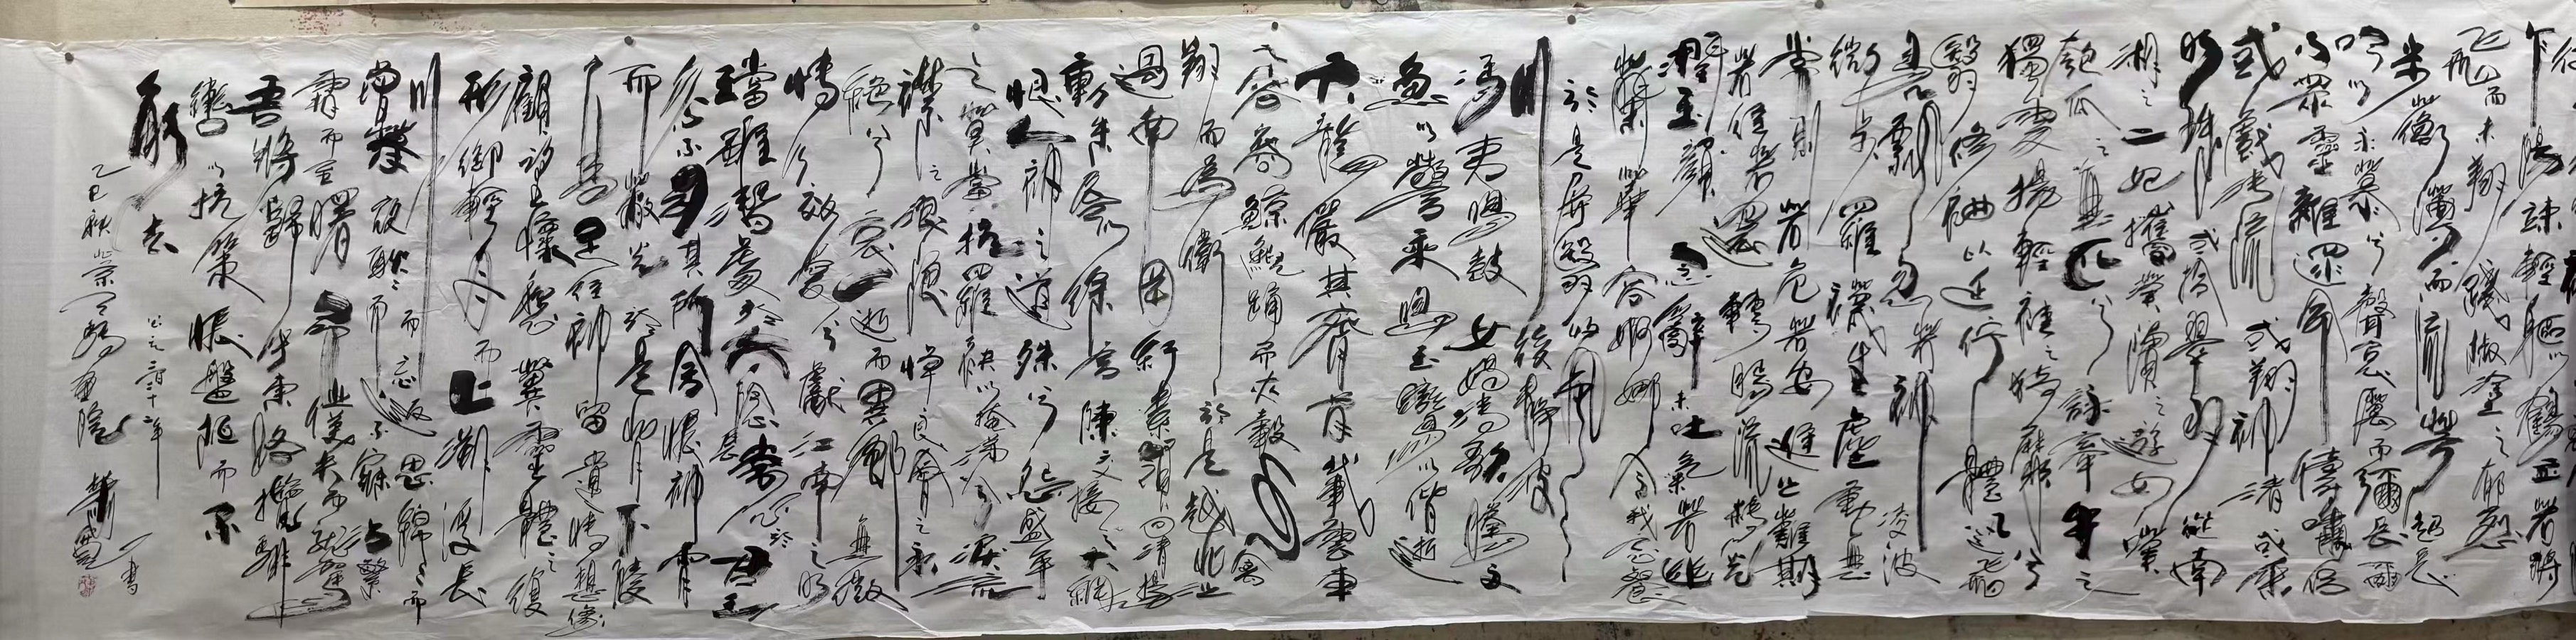 乍陽竦輕軀以鶴立若將
飛而未翔踐椒塗之郁烈
步蘅薄而流芳超長
吟以永慕兮聲哀厲而彌長爾
乃眾靈雜遝命儔嘯侶
或戲清流或翔神渚或采
明珠或拾翠羽從南
湘之二妃攜漢濱之游女嘆
匏瓜之無匹兮詠牽牛之
獨處揚輕袿之猗靡兮
翳修袖以延佇體迅飛鳧
飄忽若神凌波
微步羅襪生塵動無
常則若危若安進止難期
若往若還轉眄流精光
潤玉顏含辭未吐氣若幽
蘭華容婀娜令我忘餐
於是屏翳收風
川后靜波
馮夷鳴鼓女媧清歌騰文
魚以警乘鳴玉鸞以偕逝
六龍儼其齊首載雲車
之容裔鯨鯢踊而夾轂水禽
翔而為衛於是越北沚
過南岡紆素領迴清揚
動朱唇以徐言陳交接之大綱
恨人神之道殊兮怨盛年
之莫當抗羅袂以掩涕兮淚流
襟之浪浪悼良會之永
絕兮哀一逝而異鄉無微
情以效愛兮獻江南之明
璫雖潛處於太陰長寄心於君王
忽不悟其所舍悵神宵
而蔽光於是背下陵
高足往神留遺情想像
顧望懷愁冀靈體之復
形御輕舟而上溯浮長
川而忘返思綿綿而
增慕夜耿耿而不寐沾繁
霜而至曙命僕夫而就駕
吾將歸乎東路攬騑
轡以抗策悵盤桓而不
能去
乙巳秋